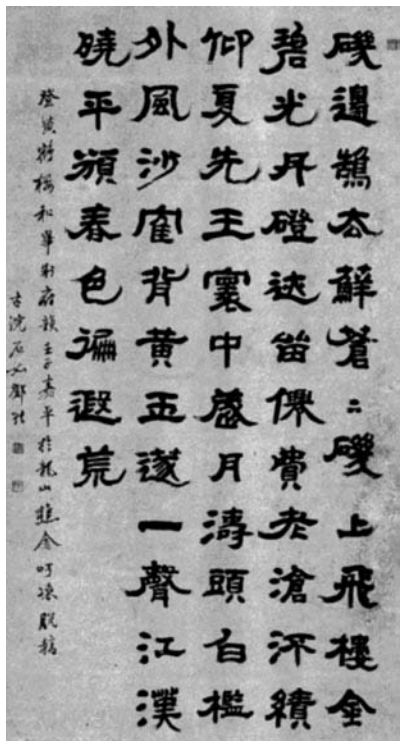 磯邊鵠去蘚蒼〻磯上飛樓金
碧光丹磴迹留僊費老滄沔績
仰夏先王寰中歲月濤頭白檻
外風沙寉背黃玉邃一聲江漢
曉平蘋春色徧遐荒
登黃鶴樓和畢制府韻壬子嘉平於龍山樵舍呵凍脫稿
古浣石如鄧琰